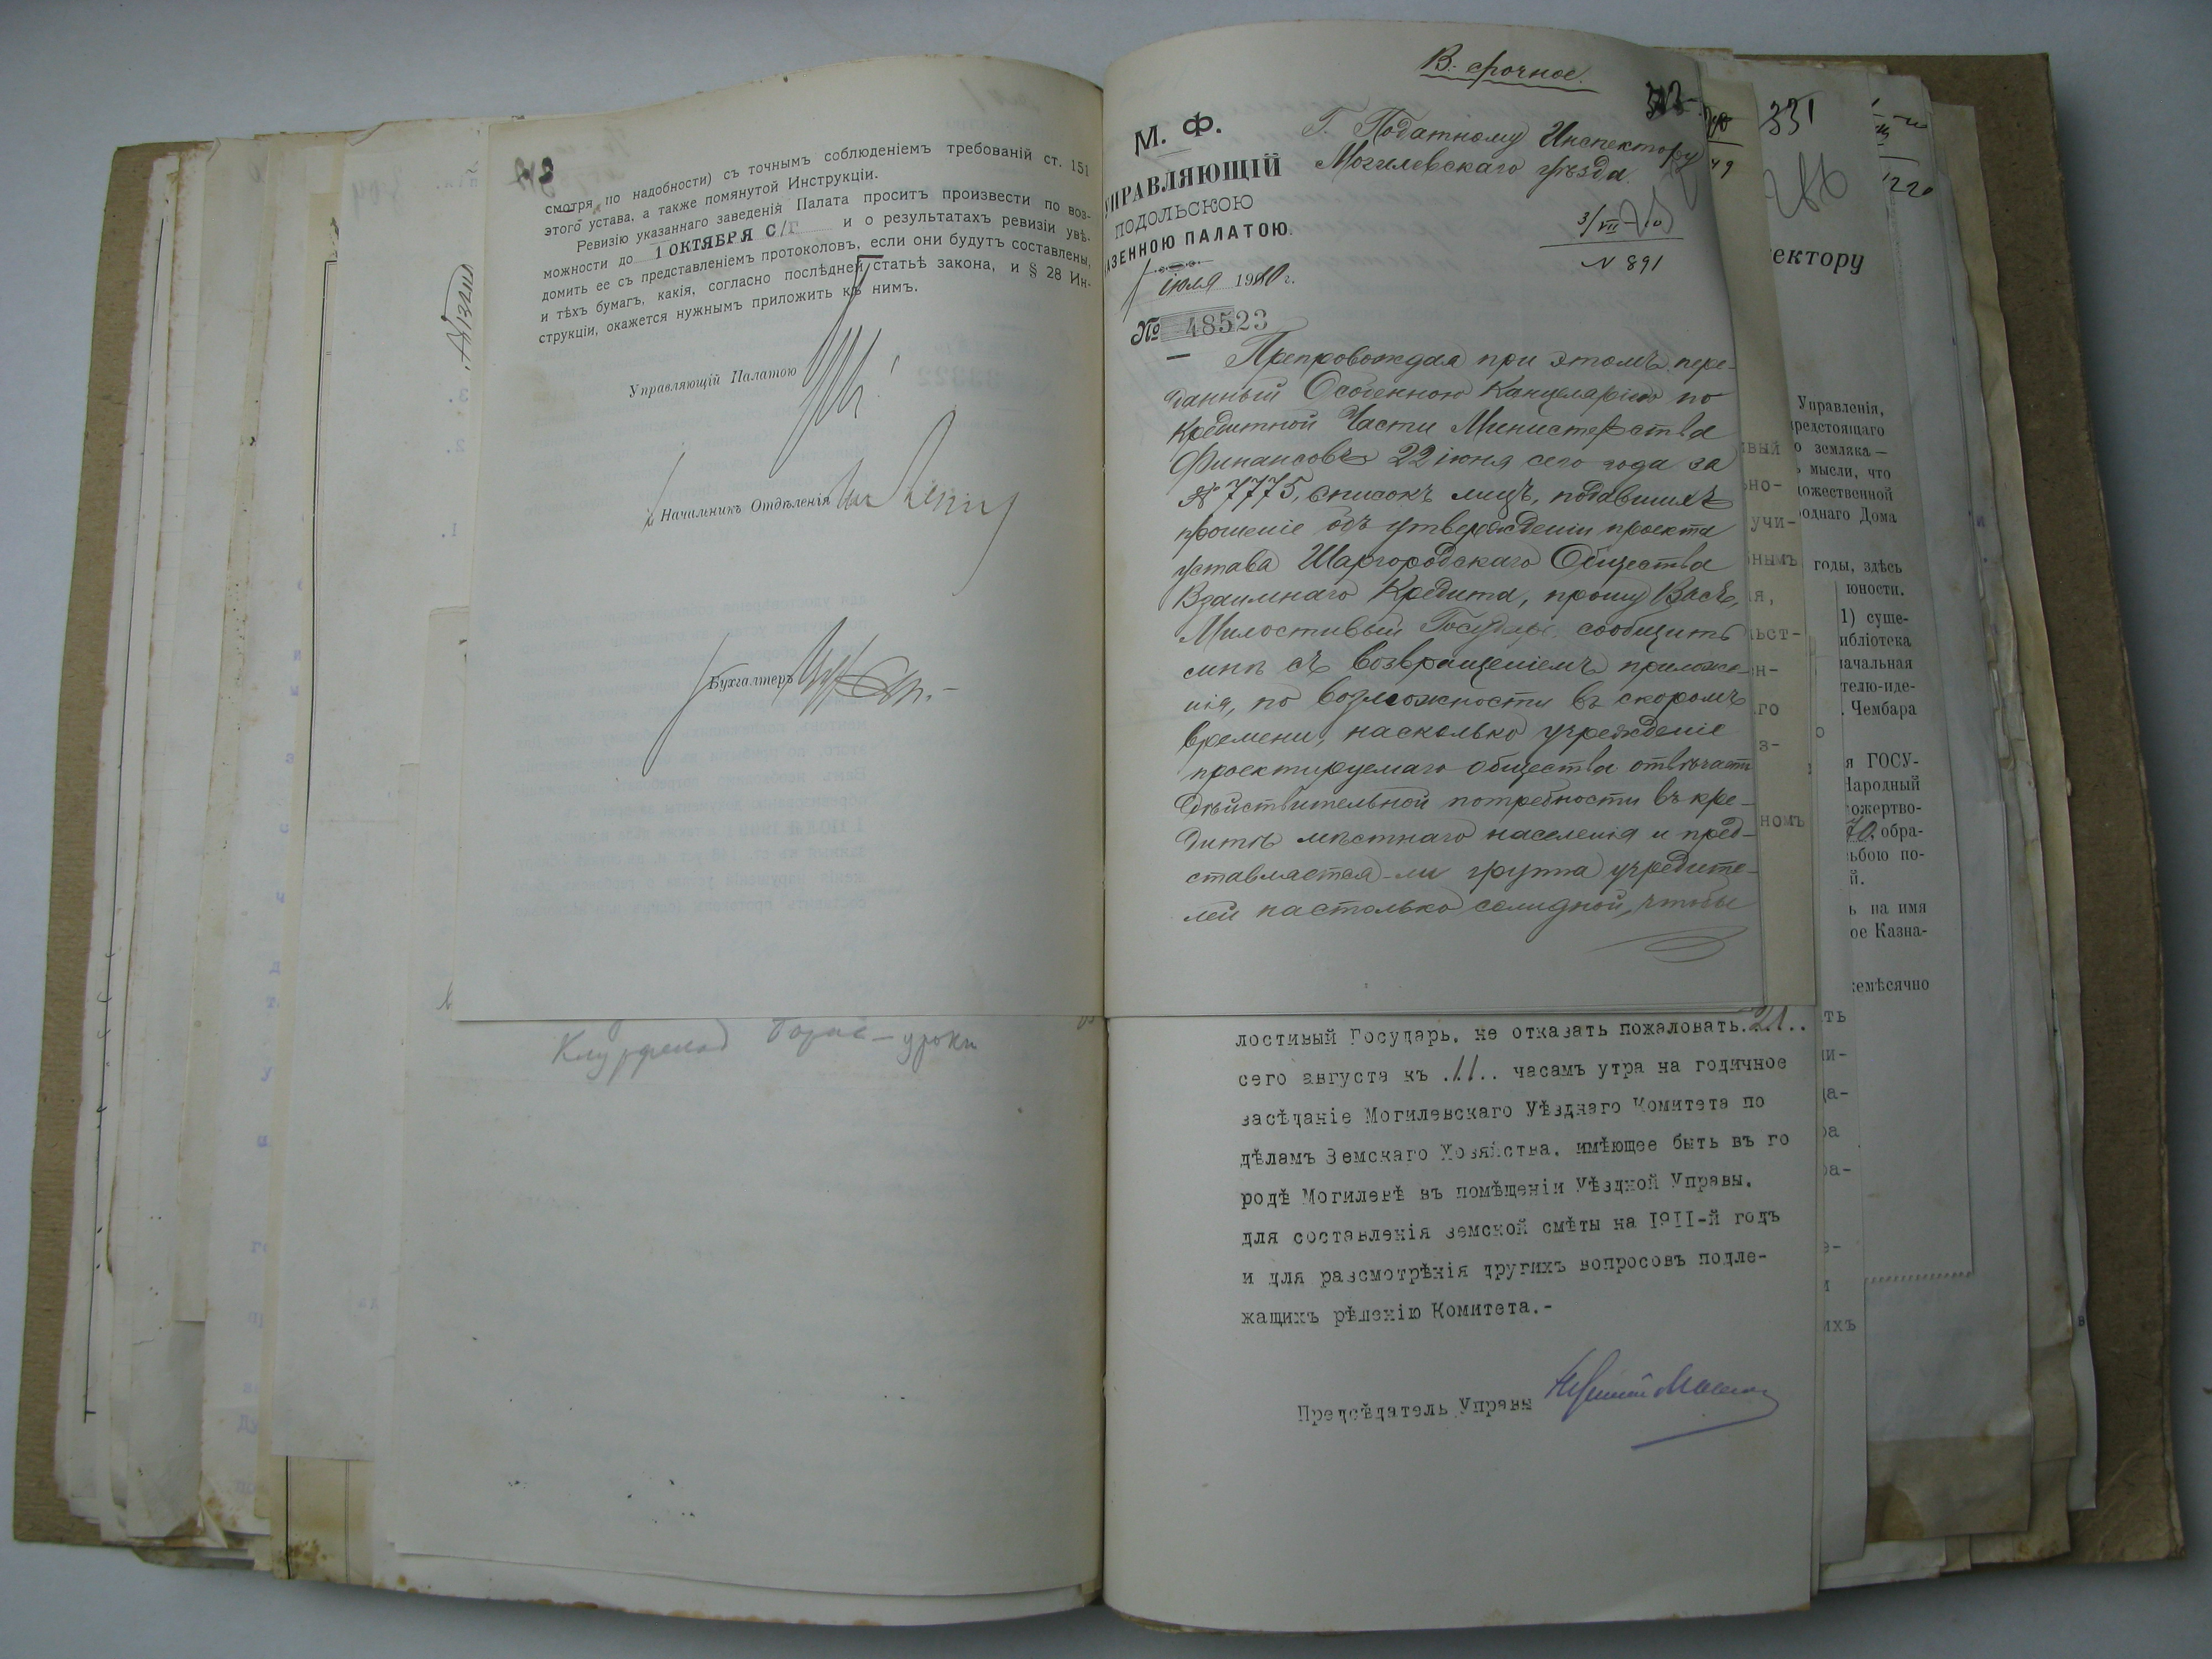 смотря по надобности) съ точнымъ соблюденіемъ требованій ст. 151
этого устава, а также помянутой Инструкціи.
Ревизію указаннаго заведенія Палата проситъ произвести по воз-
можности до 1 ОКТЯБРЯ С/Г. и о результатахъ ревизіи увѣ-
домить ее съ представленіемъ протоколовъ, если они будутъ составлены,
и тѣхъ бумагъ, какія, согласно послѣдней статьѣ закона, и § 28 Ин-
струкціи, окажется нужнымъ приложить къ нимъ.
Управляющій Палатою
Начальникъ Отдѣленія
Бухгалтеръ
уроки
В. срочное.
М. Ф.
УПРАВЛЯЮЩІЙ
ПОДОЛЬСКОЮ
АЗЕННОЮ ПАЛАТОЮ.
іюля 1910 г.
№ 48523
Г. Податному Инспектору
Могилевскаго уѣзда.
3/VII
N 891
Препровождая при этомъ пере-
данный Особенною Канцеляріею по
Кредитной Части Министерства
Финансовъ 22 іюня сего года за
№ 7775, списокъ лицъ, подавшихъ
прошеніе объ утвержденіи проекта
устава Шаргородскаго Общества
Взаимнаго Кредита, прошу Васъ,
Милостивый Государь, сообщить
мнѣ съ возвращеніемъ приложе-
нія, по возможности въ скоромъ
времени, насколько учрежденіе
проектируемаго общества отвѣчаетъ
дѣйствительной потребности въ кре-
дитѣ мѣстнаго населенія и пред-
ставляется-ли группа учредите-
лей настолько солидной, чтобы
лостивый Государь, не отказать пожаловать 21..
сего августа къ .11.. часамъ утра на годичное
засѣданіе Могилевскаго Уѣзднаго Комитета по
дѣламъ Земскаго Хозяйства, имѣющее быть въ го
родѣ Могилевѣ въ помѣщеніи Уѣздной Управы,
для составленія земской смѣты на 1911-й годъ
и для разсмотрѣнія другихъ вопросовъ подле-
жащихъ рѣшенію Комитета.-
Предсѣдатель Управы
331
286
ектору
Управленія,
редстоящаго
о земляка —
мысли, что
ожественной
роднаго Дома
годы, здѣсь
юности.
1) суще-
ибліотека
ачальная
телю-иде-
. Чембара
я ГОСУ-
Народный
ожертво-
обра-
ьбою по-
й.
ь на имя
ое Казна-
емѣсячно